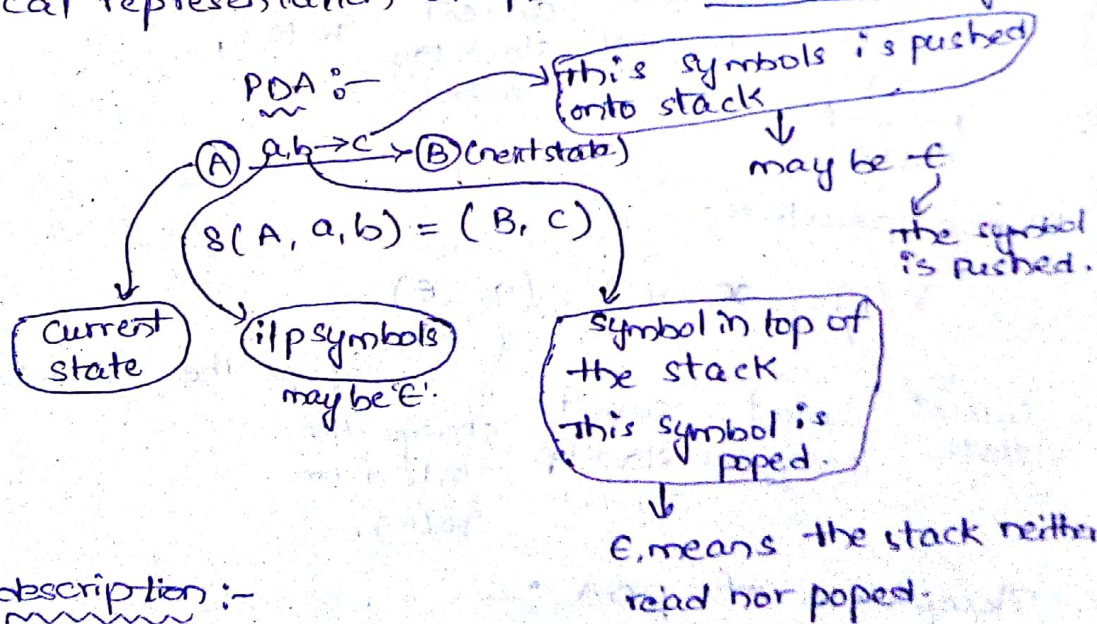 cal representation
PDA :-
This symbols is pushed
onto stack
A a,b→c B (next state)
may be ϵ
the symbol
is pushed.
δ(A, a, b) = (B, c)
Current
state
i/p symbols
may be 'ϵ'.
symbol in top of
the stack
This symbol is
poped.
ϵ, means the stack neither
read nor poped.
description :-